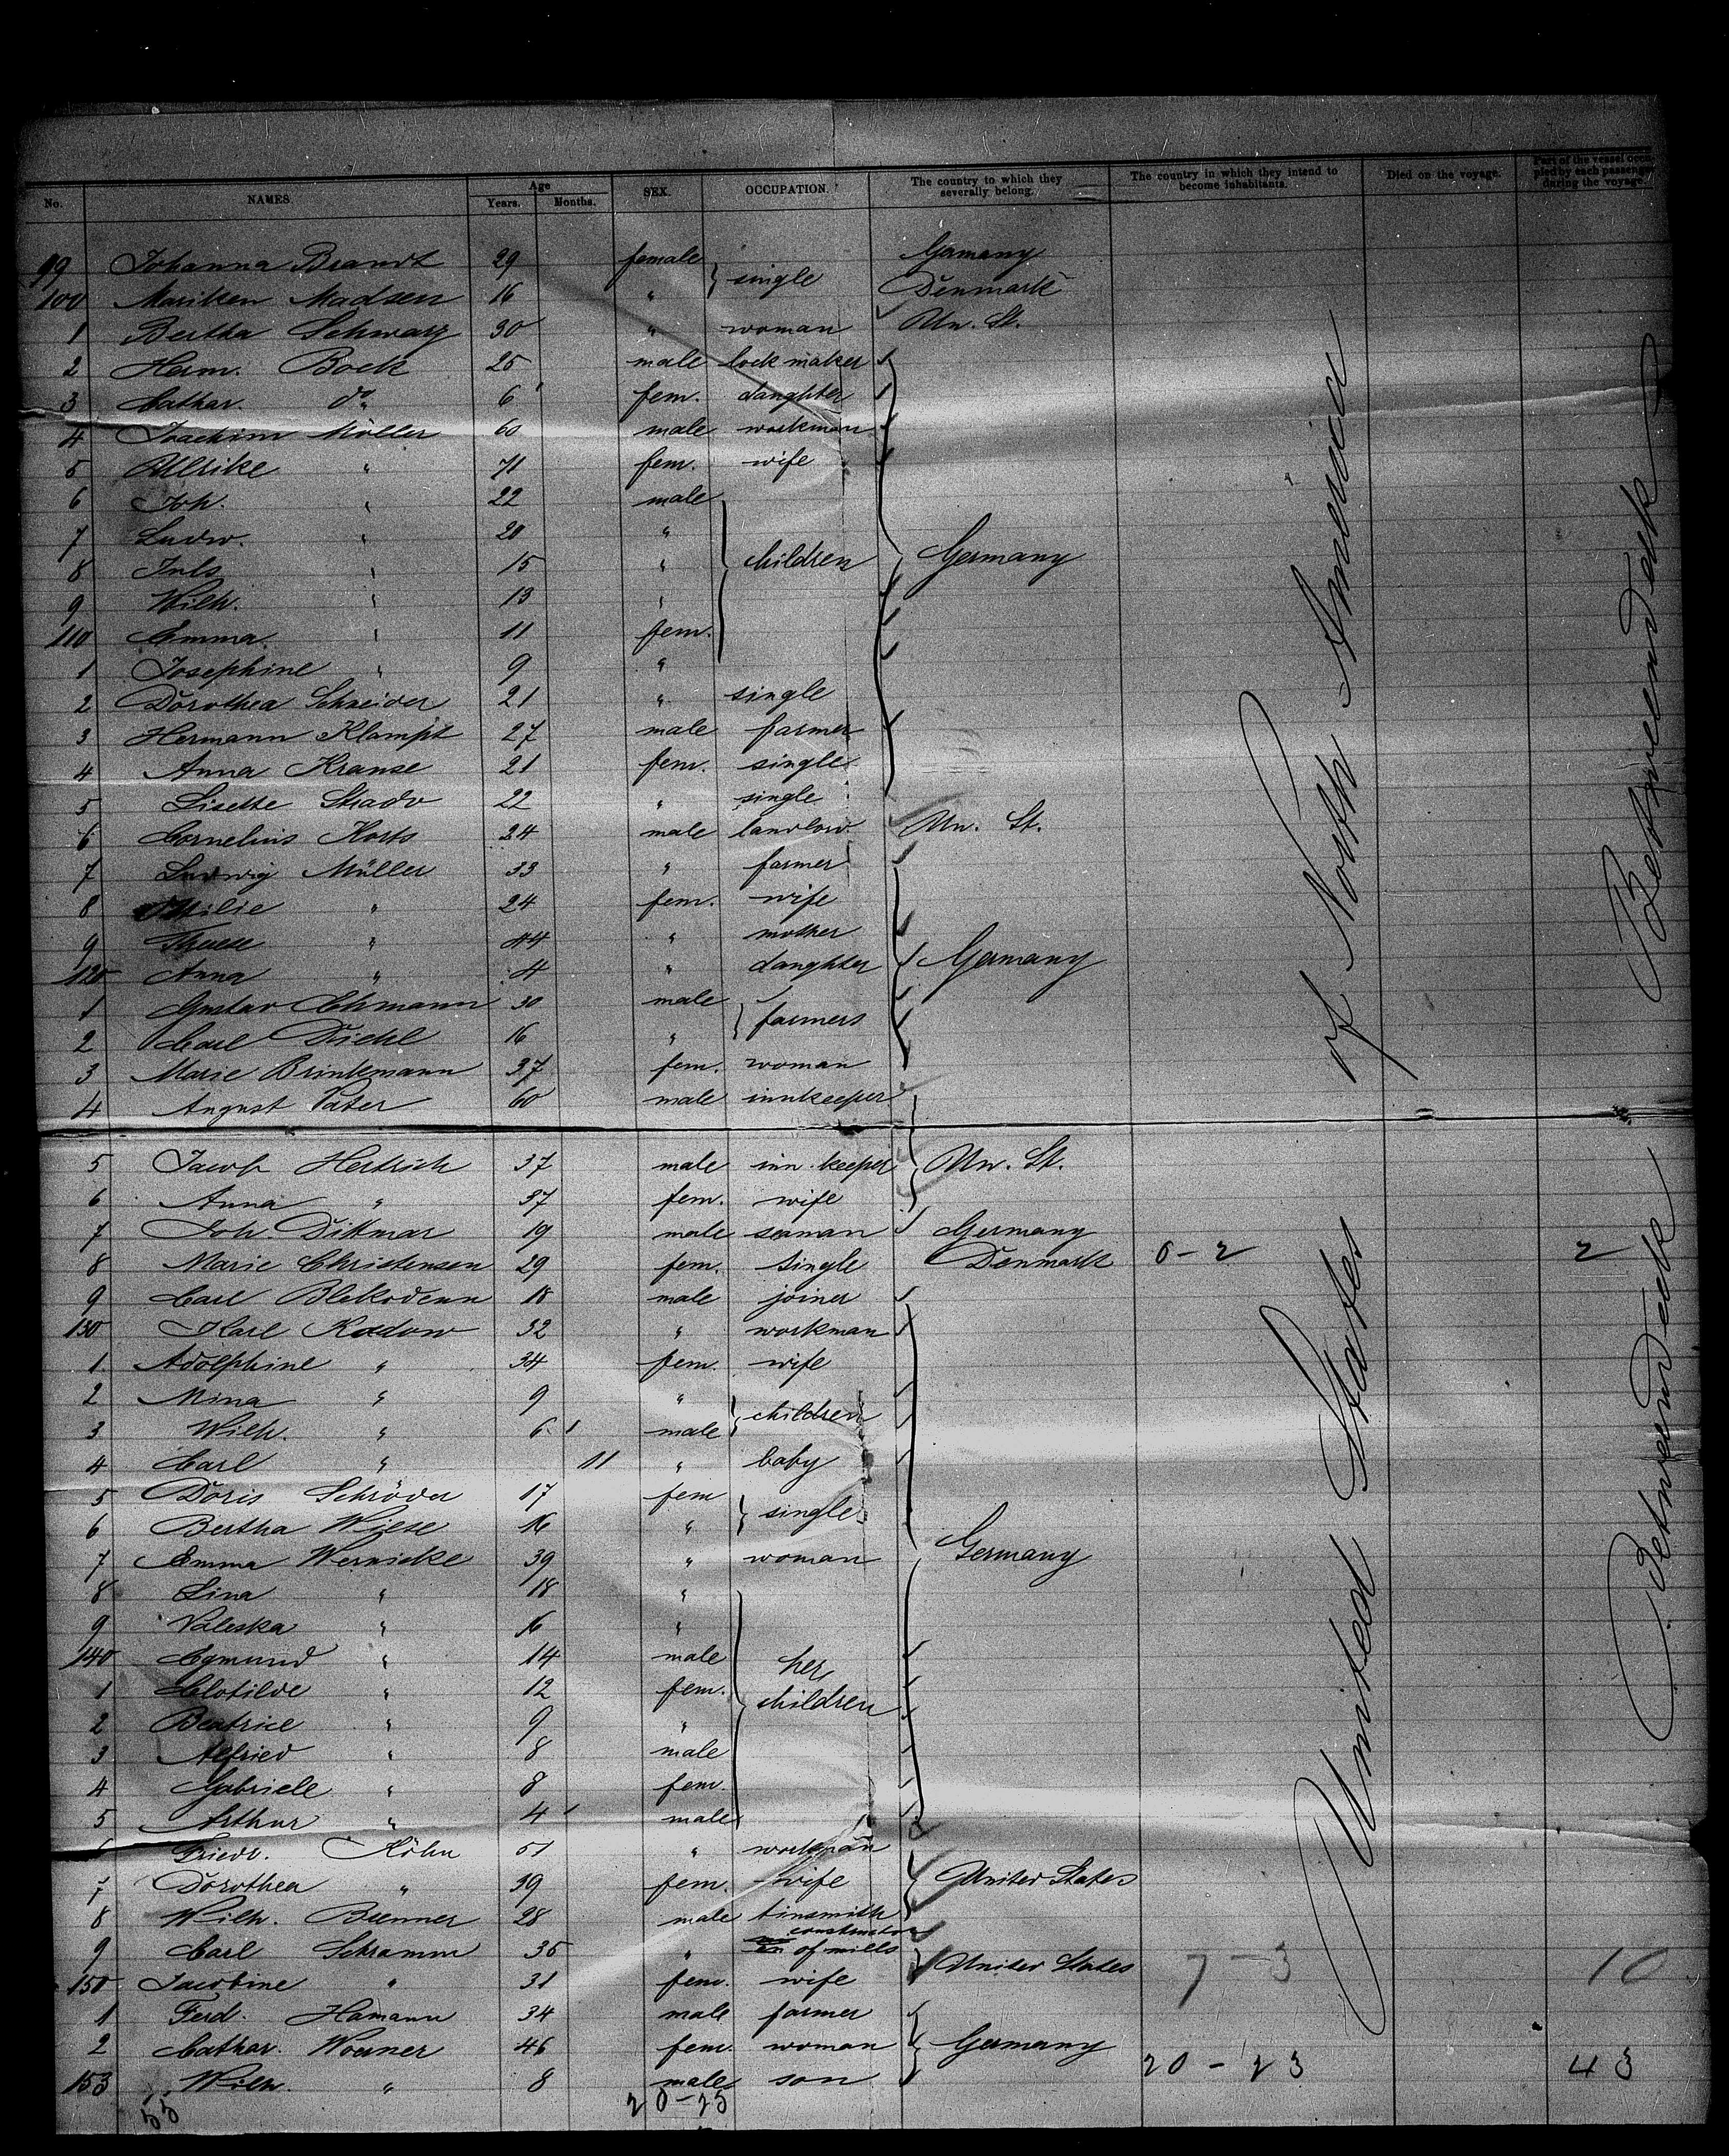 No. NAMES. Age Years. Months. SEX. OCCUPATION. The country to which they severally belong. The country in which they intend to become inhabitants. Died on the voyage. Part of the vessel occupied by each passenger during the voyage.
99 Johanna Brandt 29 female } single Gemany
100 Mariken Madsen 16 " Denmark
1 Bertha Schwarz 30 " woman Un. St.
2 Herm. Bock 25 male lock maker
3 Cathar. do. 6 fem. daughter
4 Joachim Möller 60 male workman
5 Ullrike " 71 fem. wife
6 Joh. " 22 male
7 Ludw. " 20 "
8 Juls " 15 " children Germany
9 Wilh. " 13 "
110 Emma " 11 fem.
1 Josephine " 9 "
2 Dorothea Schneider 21 " single
3 Hermann Klampt 27 male farmer
4 Anna Krause 21 fem. single
5 Lisette Stradv 22 " single
6 Cornelius Korts 24 male landlow. Un. St.
7 Ludwig Müller 33 " farmer
8 24 fem. wife
9 Therese " 44 " mother
120 Anna " 4 " daughter Germany
1 Gustav Ehmann 30 male } farmers
2 Carl Diehl 16 "
3 Marie Brinkmann 37 fem. woman
4 August Pater 60 male innkeeper
5 Jacob Hertrich 37 male inn-keeper Un. St.
6 Anna " 37 fem. wife
7 Joh. Dittmar 19 male seaman Germany
8 Marie Christensen 29 fem. single Denmark 0-2 2
9 Carl Blekodenn 18 male joiner
130 Karl Radow 32 " workman
1 Adolphine " 34 fem. wife
2 Mina " 9 " } children
3 Wilh. " 6 male
4 Carl " 11 " baby
5 Doris Schröder 17 fem } single
6 Bertha Wiese 16 "
7 Emma Wernicke 39 " woman Germany
8 Lina " 18 "
9 Valeska " 16 "
140 Egmund " 14 male her
1 Clotilde " 12 fem. children
2 Beatrice " 9 "
3 Alfried " 8 male
4 Gabriele " 8 fem.
5 Arthur " 4 male
6 Friedr. Köhn 51 " workman
7 Dorothea " 39 fem. wife United States
8 Wilh. Brenner 28 male tinsmith
9 Carl Schramm 35 " constructor of mills
150 Jacobine " 31 fem. wife United States 7-3 10
1 Ferd. Hamann 34 male farmer
2 Cathar. Woerner 46 fem. woman Germany
153 Wilh. " 8 male son 20-23 43
55 20-25
United States of North America
Betweendeck
Betweendeck